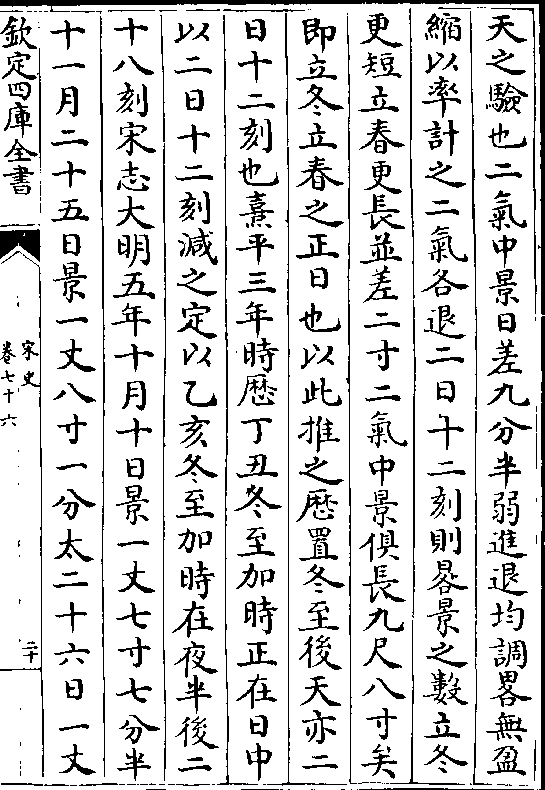 天之驗也二氣中景日差九分半弱進退均調畧無盈
縮以率計之二氣各退二日十二刻則晷景之數立冬
更短立春更長並差二寸二氣中景俱長九尺八寸矣
即立冬立春之正日也以此推之厯置冬至後天亦二
日十二刻也熹平三年時厯丁丑冬至加時正在日中
以二日十二刻減之定以乙亥冬至加時在夜半後二
十八刻宋志大明五年十月十日景一丈七寸七分半
十一月二十五日景一丈八寸一分太二十六日一丈
欽定四庫全書
宋史
卷七十六
二十